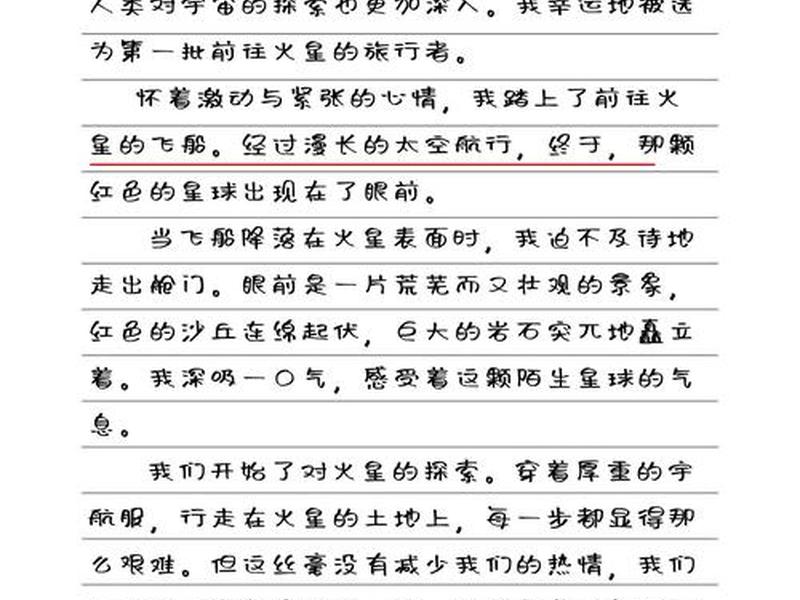 人类对宇宙的探索也更加深入。我幸运地被选
为第一批前往火星的旅行者。
怀着激动与紧张的心情，我踏上了前往火
星的飞船。经过漫长的太空航行，终于，那颗
红色的星球出现在了眼前。
当飞船降落在火星表面时，我迫不及待地
走出舱门。眼前是一片荒芜而又壮观的景象，
红色的沙丘连绵起伏，巨大的岩石突兀地矗立
着。我深吸一口气，感受着这颗陌生星球的气
息。
我们开始了对火星的探索。穿着厚重的宇
航服，行走在火星的土地上，每一步都显得那
么艰难。但这丝毫没有减少我们的热情，我们